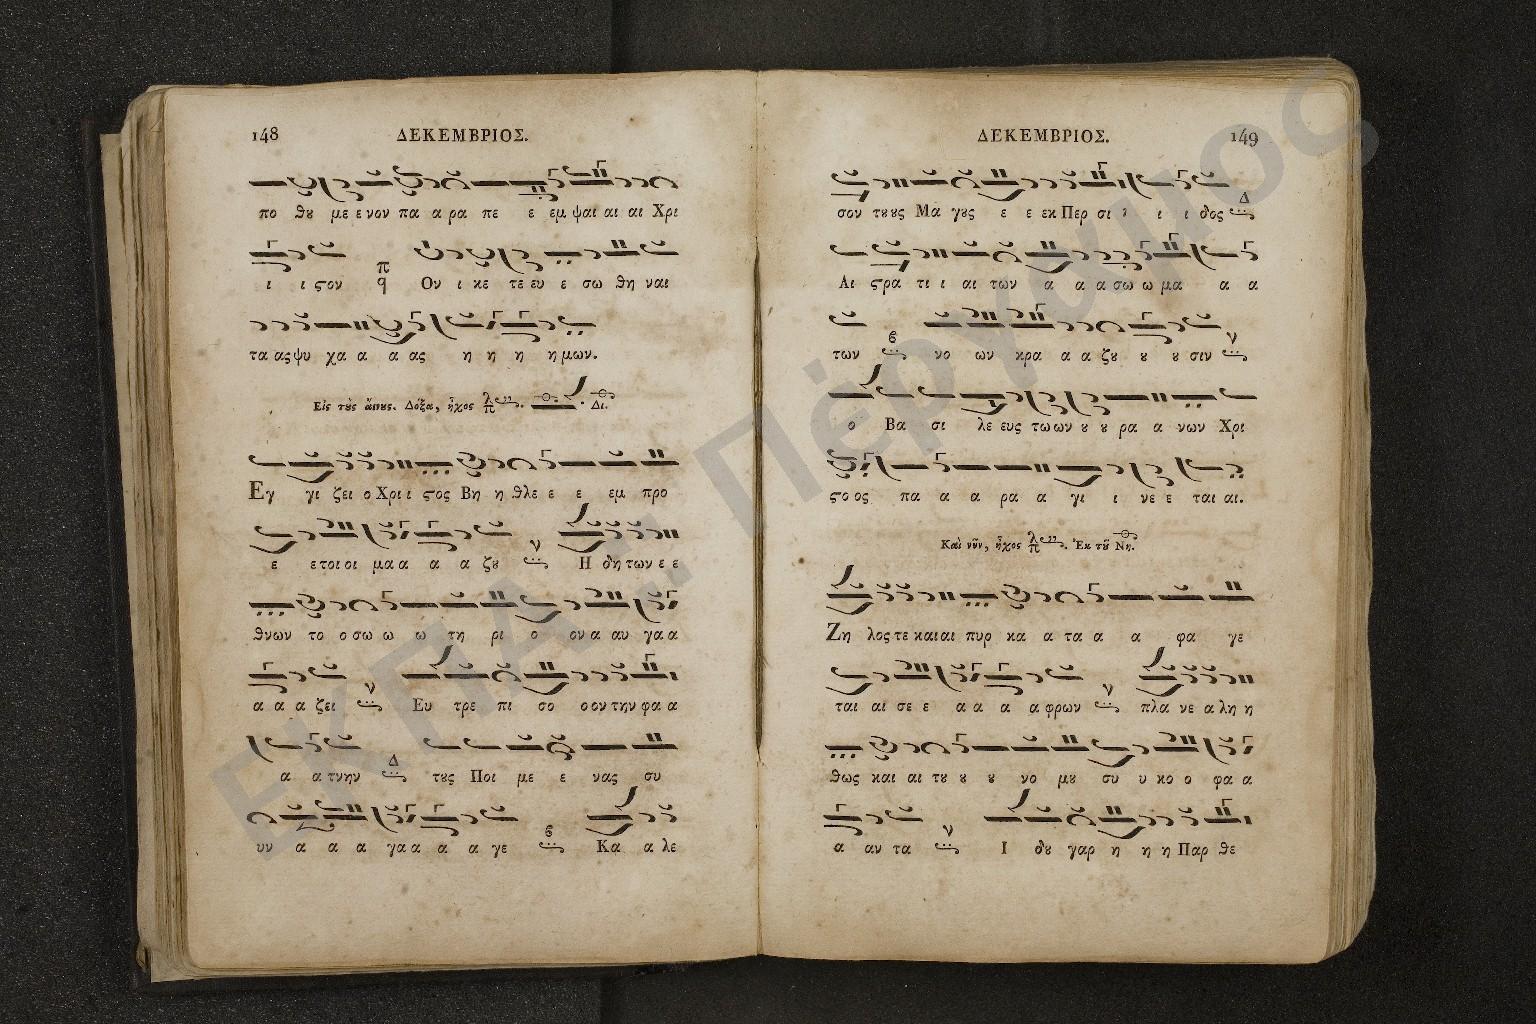 148 ΔΕΚΕΜΒΡΙΟΣ.
πο θȣ με ε νον πα α ρα πε ε εμ ψαι αι αι Χρι
ι ι ϛον π ϥ Ον ι κε τε ευ ε σω θη ναι
τα ας ψυ χα α α ας η η η η μων.
Εἰς τȣ̀ς αἴνȣς. Δόξα, ἦχος λ π Δι.
Εγ γι ζει ο Χρι ι ϛος Βη η θλε ε ε εμ προ
ε ετοι οι μα α α α ζȣ ν Η δη των ε ε
θνων το ο σω ω ω τη ρι ο ον α αυ γα α
α α α ζει ν Ευ τρε πι σο ο ον την φα α
α α τνην Δ τȣς Ποι με ε νας συ
υν α α α γα α α α α γε β Κα α λε
ΔΕΚΕΜΒΡΙΟΣ. 149
σον τȣ ȣς Μα γȣς ε ε εκ Περ σι ι ι ι δος Δ
Αι ϛρα τι ι αι των α α α σω ω μα α α
των β νο ων κρα α α ζȣ ȣ ȣ σιν ν
ο Βα σι λε ευς τω ων ȣ ȣ ρα α νων Χρι
ϛο ος πα α α ρα α γι ι νε ε ται αι.
Καὶ νῦν, ἦχος λ π. Ἐκ τȣ͂ Νη.
Ζη λος τε και αι πυρ κα α τα α α φα γε
ται αι σε ε α α α α φρων ν πλα νε α λη η
θως και αι τȣ ȣ ȣ νο μȣ συ υ κο ο φα α
α αν τα ν Ι δȣ γαρ η η η Παρ θε
ΕΚΠΑ.: Πέργαμος